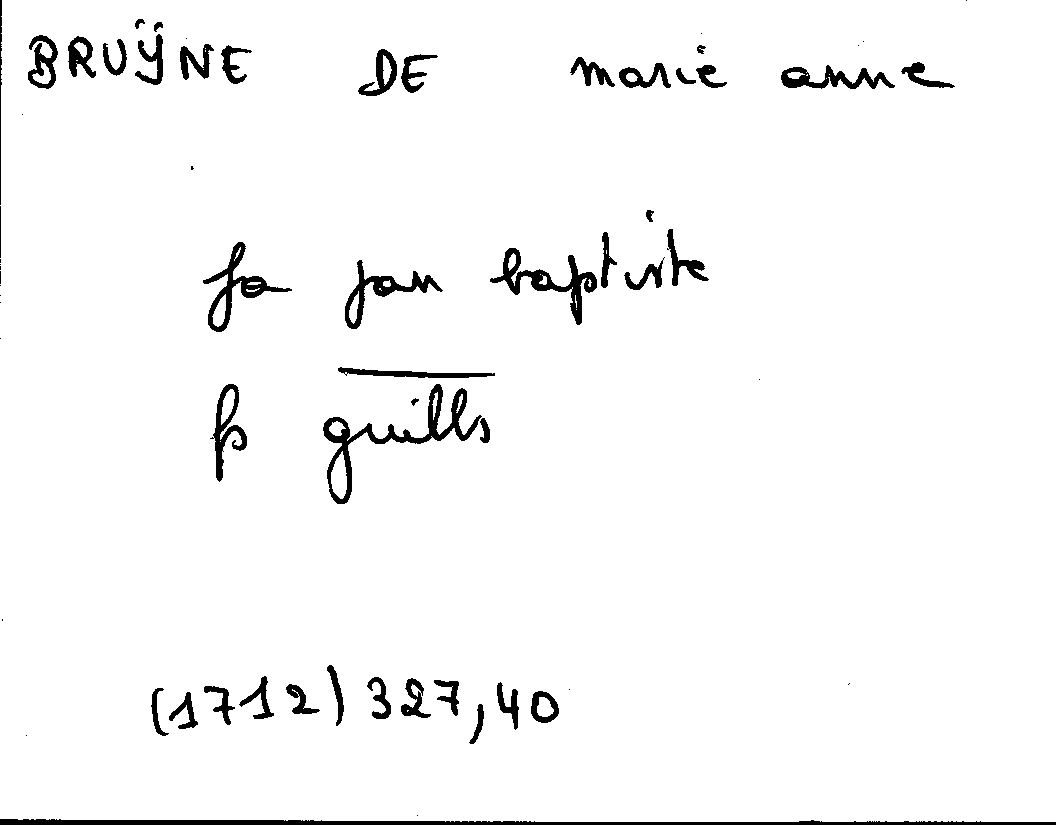 BRUŸNE DE marie anne
fa jan baptiste
p guills
(1712) 327,40